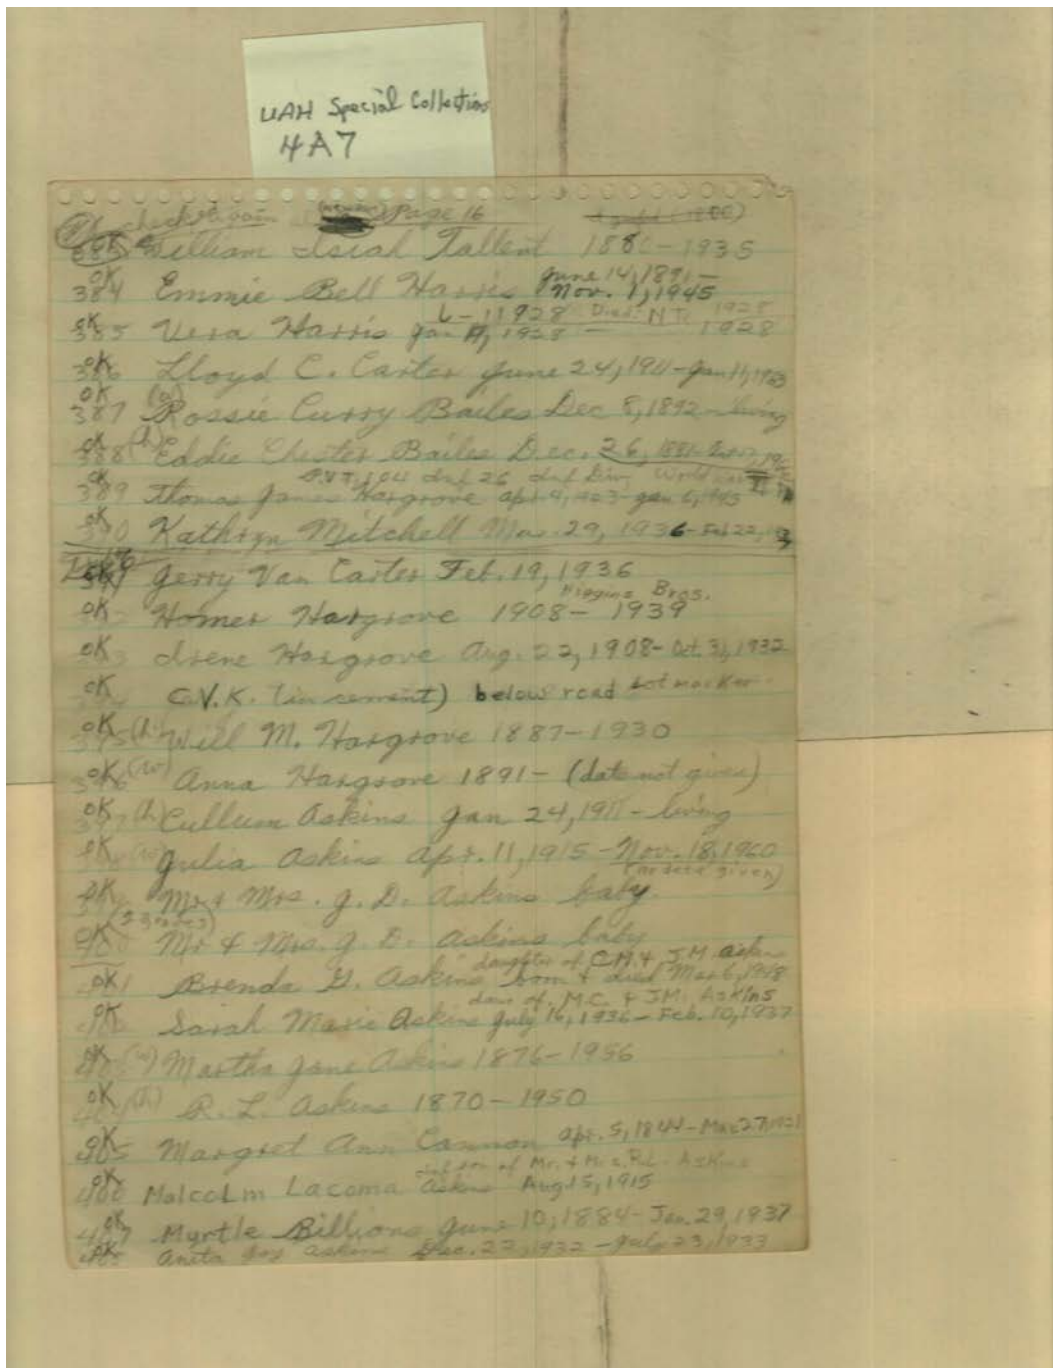 UAH Special Collections
4A7
Check Again Page 16
William Isiah Tallent 1880-1935
OK
384 Emmie Bell Harris June 14, 1891-
Nov. 1, 1945
1928 Died 1928
OK
385 Vera Harris Jan 1928 - 1928
OK
386 Lloyd C. Carter June 24, 1911 - Jan 11,
OK
387 (w) Rossie Curry Bailes Dec 8, 1892 - living
OK
388 (h) Eddie Chester Bailes Dec. 26,
PVT. 104 Inf 26 Inf Div, World War II
OK
389 Thomas James Hargrove Apr 9, - Jan 6, 1945
OK
390 Kathryn Mitchell Mar. 29, 1936 - Feb 22,
Jerry Van Carter Feb. 19, 1936
Higgins Bros.
OK Homer Hargrove 1908 - 1939
OK Irene Hargrove Aug. 22, 1908 - Oct. 31, 1932
OK C.V.K. (in cement) below road lot marker
OK
395 (h) Will M. Hargrove 1887-1930
OK
396 (w) Anna Hargrove 1891 - (date not given)
OK
397 (h) Cullum Askins Jan 24, 1911 - living
OK (w) Julia Askins Apr. 11, 1915 - Nov. 18, 1960
(no date given)
OK Mr & Mrs. J. D. Askins baby.
(2 graves)
OK
400 Mr & Mrs. J. D. Askins baby
daughter of C.M. & J.M. Askins
OK
401 Brenda G. Askins born & died Mar 6,
dau of M.C. & J.M. Askins
OK Sarah Marie Askins July 16, 1936 - Feb. 10, 1937
OK
403 (w) Martha Jane Askins 1876-1956
OK
404 (h) R. L. Askins 1870-1950
OK
405 Margret Ann Cannon Apr. 5, 1844 - Mar 27, 1921
Inf son of Mr. & Mrs. R.L. Askins
OK
406 Malcolm Lacoma Askins Aug 15, 1915
OK
407 Myrtle Billions June 10, 1884 - Jan. 29, 1937
OK
408 Anita Joy Askins Dec. 22, 1932 - July 23, 1933